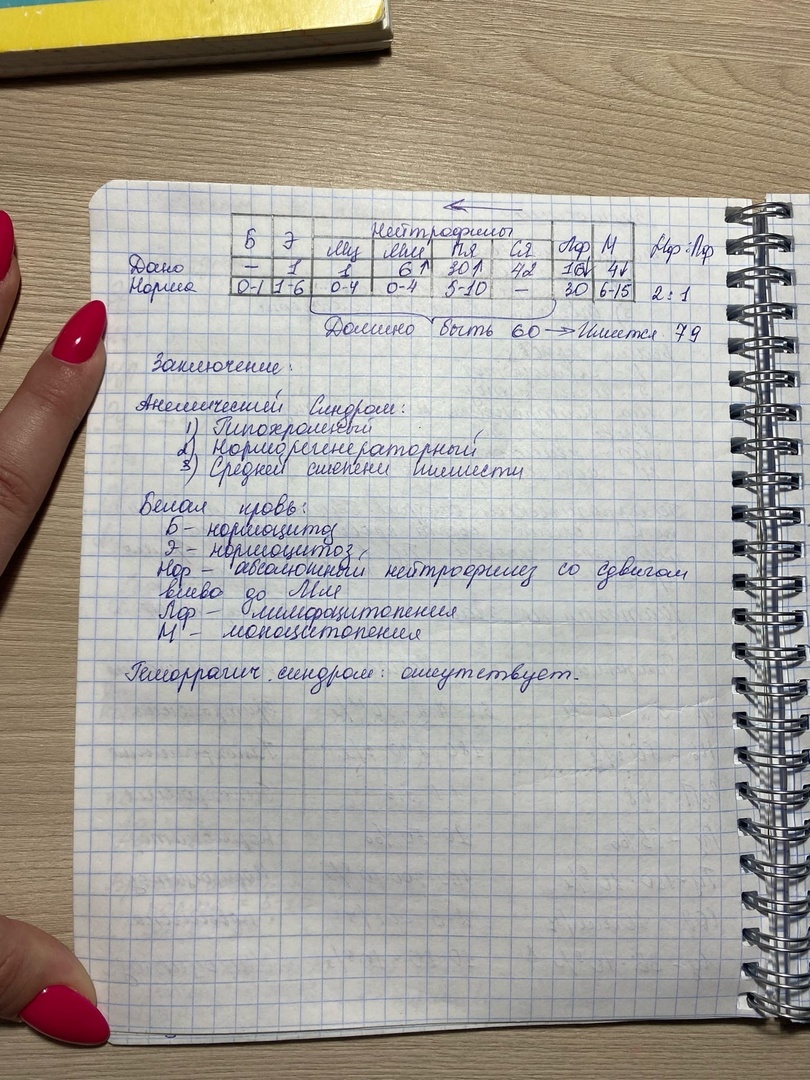 Нейтрофилы
Б Э Мц Мм ПЯ СЯ Лф М Нф:Лф
Дано — 1 1 6↑ 30↑ 42 16↓ 4↓
Норма 0-1 1-6 0-4 0-4 5-10 — 30 6-15 2:1
Должно быть 60 → Имеется 79
Заключение:
Анемический Синдром:
1) Гипохромный
2) Норморегенераторный
3) Средней степени тяжести
Белая кровь:
Б – нормоцитоз
Э – нормоцитоз
Нф – абсолютный нейтрофилез со сдвигом
влево до Мм
Лф – лимфоцитопения
М – моноцитопения
Геморрагич. синдром: отсутствует.